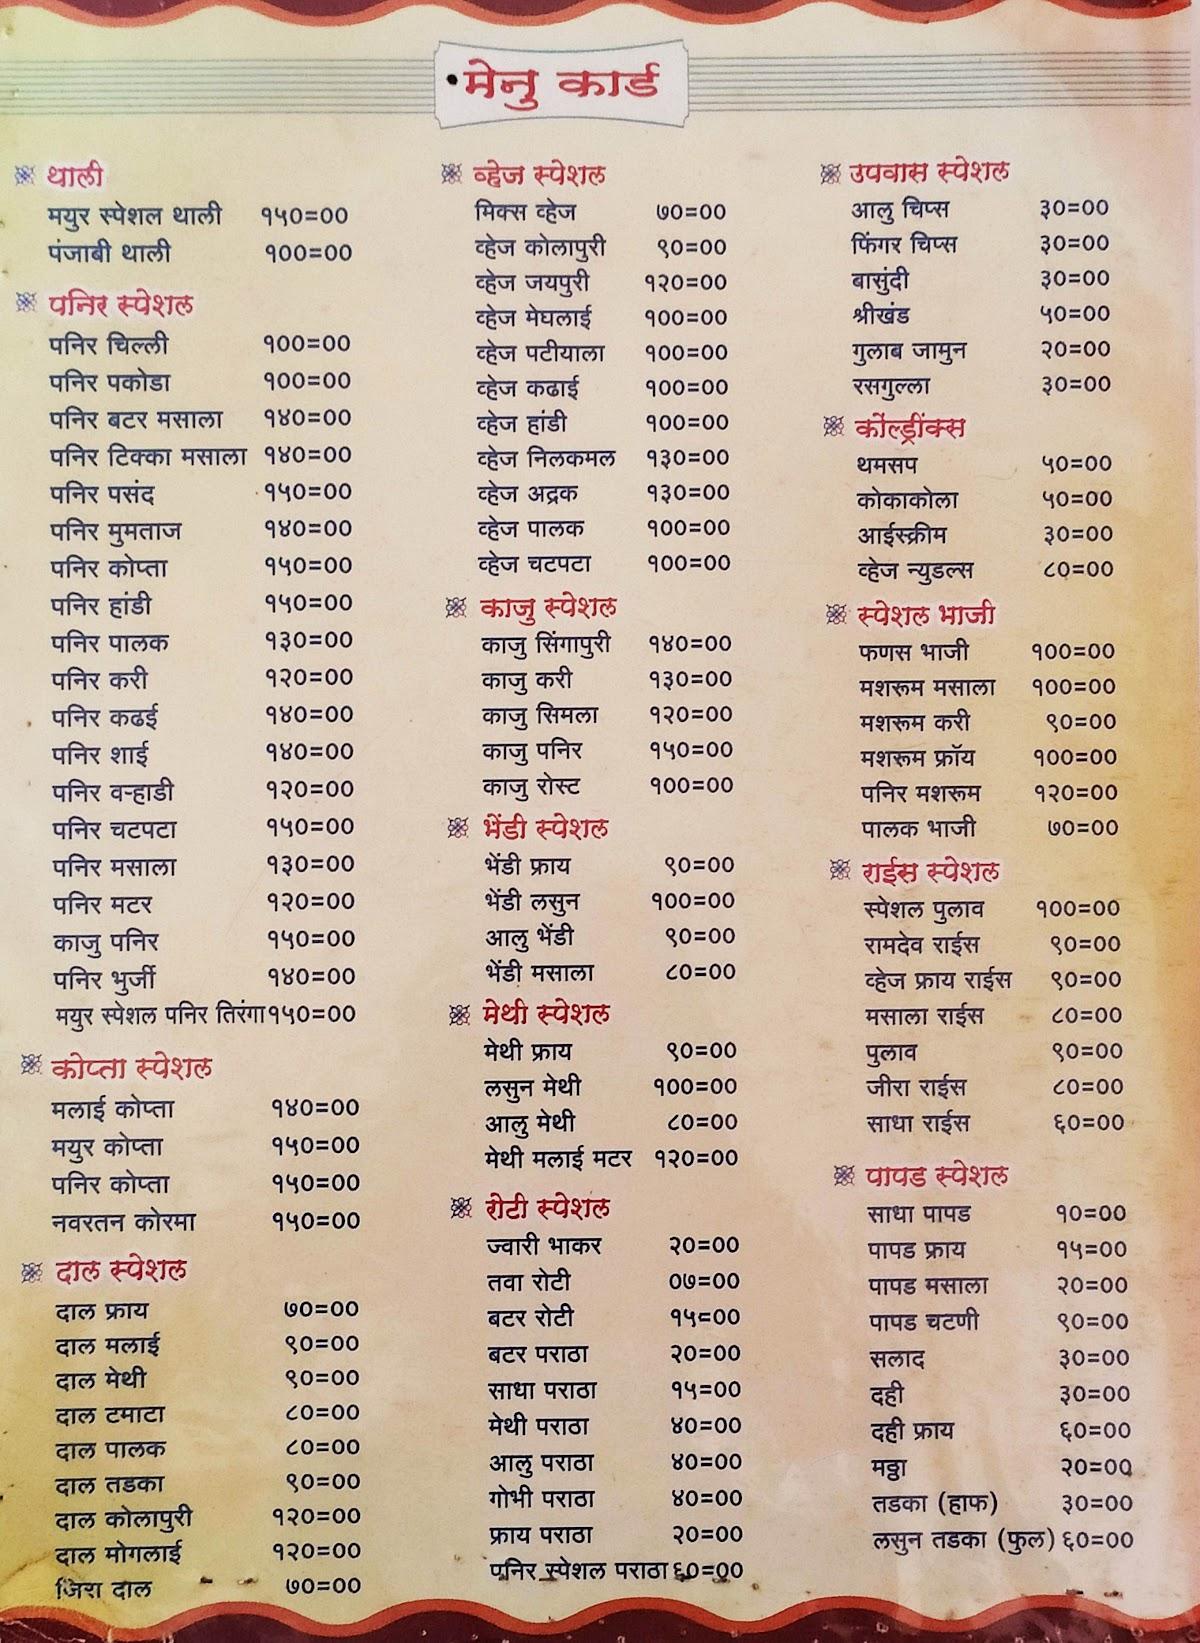 मेनु कार्ड
थाली
मयुर स्पेशल थाली १५०=००
पंजाबी थाली १००=००
पनिर स्पेशल
पनिर चिल्ली १००=००
पनिर पकोडा १००=००
पनिर बटर मसाला १४०=००
पनिर टिक्का मसाला १४०=००
पनिर पसंद १५०=००
पनिर मुमताज १४०=००
पनिर कोप्ता १५०=००
पनिर हांडी १५०=००
पनिर पालक १३०=००
पनिर करी १२०=००
पनिर कढई १४०=००
पनिर शाई १४०=००
पनिर वऱ्हाडी १२०=००
पनिर चटपटा १५०=००
पनिर मसाला १३०=००
पनिर मटर १२०=००
काजु पनिर १५०=००
पनिर भुर्जी १४०=००
मयुर स्पेशल पनिर तिरंगा १५०=००
कोप्ता स्पेशल
मलाई कोप्ता १४०=००
मयुर कोप्ता १५०=००
पनिर कोप्ता १५०=००
नवरतन कोरमा १५०=००
दाल स्पेशल
दाल फ्राय ७०=००
दाल मलाई ९०=००
दाल मेथी ९०=००
दाल टमाटा ८०=००
दाल पालक ८०=००
दाल तडका ९०=००
दाल कोलापुरी १२०=००
दाल मोगलाई १२०=००
जिरा दाल ७०=००
व्हेज स्पेशल
मिक्स व्हेज ७०=००
व्हेज कोलापुरी ९०=००
व्हेज जयपुरी १२०=००
व्हेज मेघलाई १००=००
व्हेज पटीयाला १००=००
व्हेज कढाई १००=००
व्हेज हांडी १००=००
व्हेज निलकमल १३०=००
व्हेज अद्रक १३०=००
व्हेज पालक १००=००
व्हेज चटपटा १००=००
काजु स्पेशल
काजु सिंगापुरी १४०=००
काजु करी १३०=००
काजु सिमला १२०=००
काजु पनिर १५०=००
काजु रोस्ट १००=००
भेंडी स्पेशल
भेंडी फ्राय ९०=००
भेंडी लसुन १००=००
आलु भेंडी ९०=००
भेंडी मसाला ८०=००
मेथी स्पेशल
मेथी फ्राय ९०=००
लसुन मेथी १००=००
आलु मेथी ८०=००
मेथी मलाई मटर १२०=००
रोटी स्पेशल
ज्वारी भाकर २०=००
तवा रोटी ०७=००
बटर रोटी १५=००
बटर पराठा २०=००
साधा पराठा १५=००
मेथी पराठा ४०=००
आलु पराठा ४०=००
गोभी पराठा ४०=००
फ्राय पराठा २०=००
पनिर स्पेशल पराठा ६०=००
उपवास स्पेशल
आलु चिप्स ३०=००
फिंगर चिप्स ३०=००
बासुंदी ३०=००
श्रीखंड ५०=००
गुलाब जामुन २०=००
रसगुल्ला ३०=००
कोंल्ड्रींक्स
थमसप ५०=००
कोकाकोला ५०=००
आईस्क्रीम ३०=००
व्हेज न्युडल्स ८०=००
स्पेशल भाजी
फणस भाजी १००=००
मशरूम मसाला १००=००
मशरूम करी ९०=००
मशरूम फ्रॉय १००=००
पनिर मशरूम १२०=००
पालक भाजी ७०=००
राईस स्पेशल
स्पेशल पुलाव १००=००
रामदेव राईस ९०=००
व्हेज फ्राय राईस ९०=००
मसाला राईस ८०=००
पुलाव ९०=००
जीरा राईस ८०=००
साधा राईस ६०=००
पापड स्पेशल
साधा पापड १०=००
पापड फ्राय १५=००
पापड मसाला २०=००
पापड चटणी ९०=००
सलाद ३०=००
दही ३०=००
दही फ्राय ६०=००
मठ्ठा २०=००
तडका (हाफ) ३०=००
लसुन तडका (फुल) ६०=००